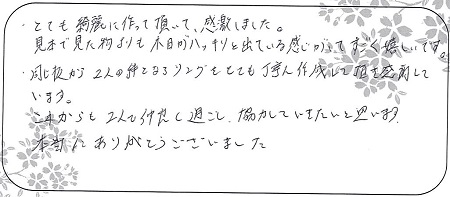 ・とても綺麗に作って頂いて、感激しました。
見本で見た物よりも木目がハッキリと出ている感じがしてすごく嬉しいです。
・同じ板から2人の絆となるリングをとても丁寧に作成して頂き感謝して
います。
これからも2人で仲良く過ごし、協力していきたいと思います。
本当にありがとうございました